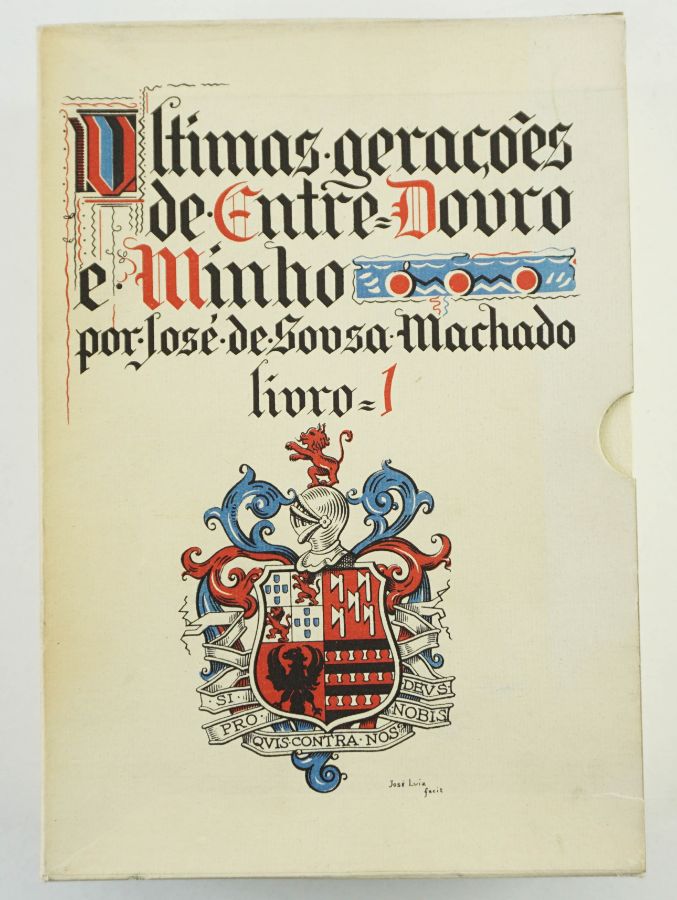 Ultimas·gerações
de·Entre=Douro
e·Minho
por·José·de·Sousa·Machado
livro=1
·SI·
DEVS·
PRO·
NOBIS
QVIS·CONTRA·NOS?
José Luiz
facit